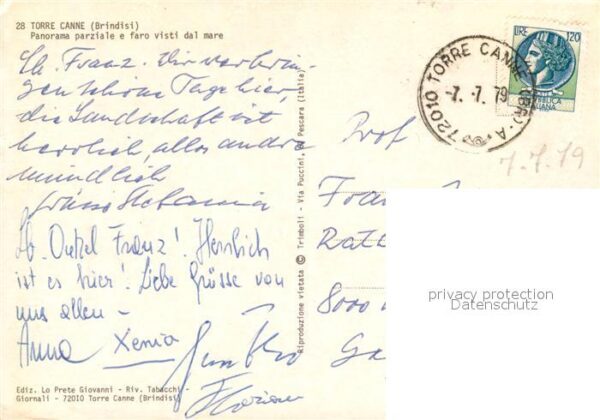 28 TORRE CANNE (Brindisi)
Panorama parziale e faro visti dal mare
Lb. Franz. Wir verbrin-
gen schöne Tage hier,
die Landschaft ist
herrlich, alles andre
mündlich
Grüsse Stefania
Lb. Onkel Franz! Herrlich
ist es hier! Liebe Grüsse von
uns allen -
Anna Xenia
Florian
Ediz. Lo Prete Giovanni - Riv. Tabacchi -
Giornali - 72010 Torre Canne (Brindisi)
Riproduzione vietata © Trimboli - Via Puccini, Pescara (Italia)
LIRE 120
72010 TORRE CANNE (BR) · A
-7. 7. 79
7.7.79
Prof
Fran
Rat
8000
Ga
privacy protection
Datenschutz